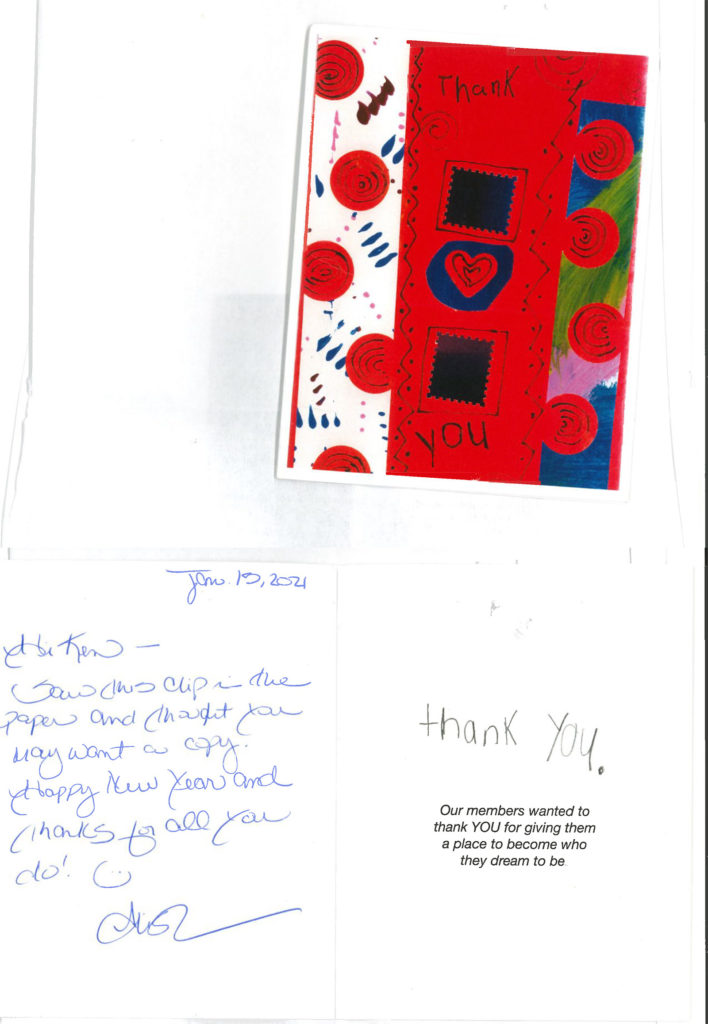 Thank
you
Jan. 15, 2021
Hi Ken —
Saw this clip in the
paper and thought you
may want a copy.
Happy New Year and
thanks for all you
do!
thank you.
Our members wanted to
thank YOU for giving them
a place to become who
they dream to be